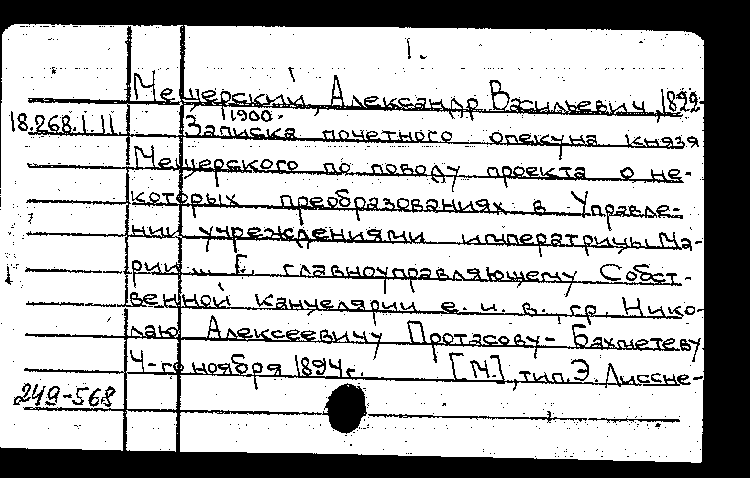 1.
Мещерский, Александр Васильевич, 1822-
1900.
18.268.1.11 Записка почетного опекуна князя
Мещерского по поводу проекта о не-
которых преобразованиях в Управле-
нии учреждениями императрицы Ма-
рии... Е. главноуправляющему Собст-
венной канцелярии е. и. в., гр. Нико-
лаю Алексеевичу Протасову-Бахметеву
4-го ноября 1894г. [М], тип. Э. Лиссне-
249-568